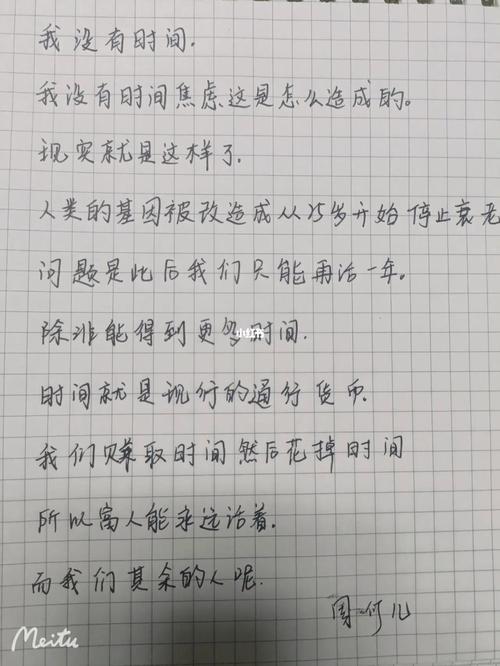 我没有时间.
我没有时间焦虑这是怎么造成的。
现实就是这样了.
人类的基因被改造成从25岁开始停止衰老
问题是此后我们只能再活一年。
除非能得到更多时间.
小红书
时间就是现行的通行货币.
我们赚取时间然后花掉时间
所以富人能永远活着.
而我们其余的人呢.
周何儿
Meitu